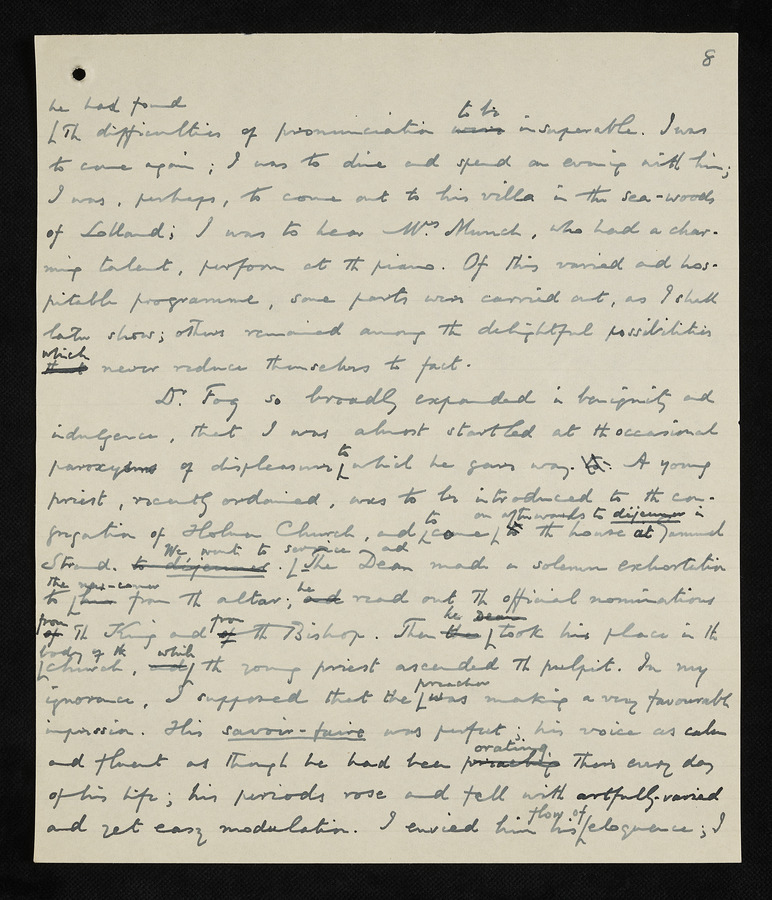 8
he had found
to be
[Th difficulties of pronunciation were insuperable. I was
to come again; I was to dine and spend an evening with him;
I was, perhaps, to come out to his villa in the sea-woods
of Lolland; I was to hear Mrs. Munch, who had a char-
ming talent, perform at th piano. Of this varied and hos-
pitable programme, some parts were carried out, as I shall
later show; others remained among th delightful possibilities
which
that never reduce themselves to fact.
Dr. Fog so broadly expanded in benignity and
indulgence, that I was almost startled at th occasional
to
paroxysms of displeasure [which he gave way. A young
priest, recently ordained, was to be introduced to th con-
to on afterwards to déjeuner in
gregation of Holmen Church, and [come [to th house at Jamund
We went to service and
Strand. to déjeuner. [The Dean made a solemn exhortation
the new-comer he
to [him from th altar; and read out th official nominations
from from he Dean
of Th King and of th Bishop. Then the [took his place in th
body of th which
[church, and [th young priest ascended th pulpit. In my
preacher
ignorance, I supposed that the [was making a very favourable
impression. His savoir-faire was perfect; his voice as calm
orating
and fluent as though he had been preaching there every day
of his life; his periods rose and fell with artfully-varied
flow of
and yet easy modulation. I envied him his [eloquence; I